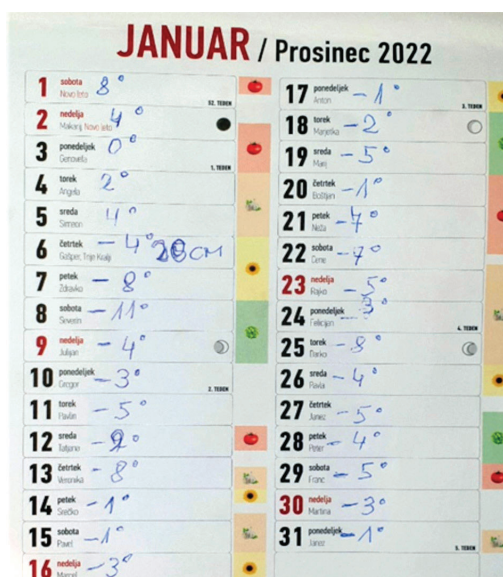 JANUAR / Prosinec 2022
1 sobota 8°
Novo leto
52. TEDEN
2 nedelja 4°
Makarij, Novo leto
3 ponedeljek 0°
Genovefa
1. TEDEN
4 torek 2°
Angela
5 sreda 4°
Simeon
6 četrtek - 4° 20 CM
Gašper, Trije Kralji
7 petek - 8°
Zdravko
8 sobota - 11°
Severin
9 nedelja - 4°
Julijan
10 ponedeljek - 3°
Gregor
2. TEDEN
11 torek - 5°
Pavlin
12 sreda
Tatjana
13 četrtek - 8°
Veronika
14 petek - 1°
Srečko
15 sobota - 1°
Pavel
16 nedelja - 3°
Marcel
17 ponedeljek - 1°
Anton
3. TEDEN
18 torek - 2°
Marjetka
19 sreda - 5°
Marij
20 četrtek - 1°
Boštjan
21 petek - 7°
Neža
22 sobota - 7°
Cene
23 nedelja - 5°
Rajko
24 ponedeljek - 3°
Felicijan
4. TEDEN
25 torek - 8°
Darko
26 sreda - 4°
Pavla
27 četrtek - 5°
Janez
28 petek - 4°
Peter
29 sobota - 5°
Franc
30 nedelja - 3°
Martina
31 ponedeljek - 1°
Janez
5. TEDEN